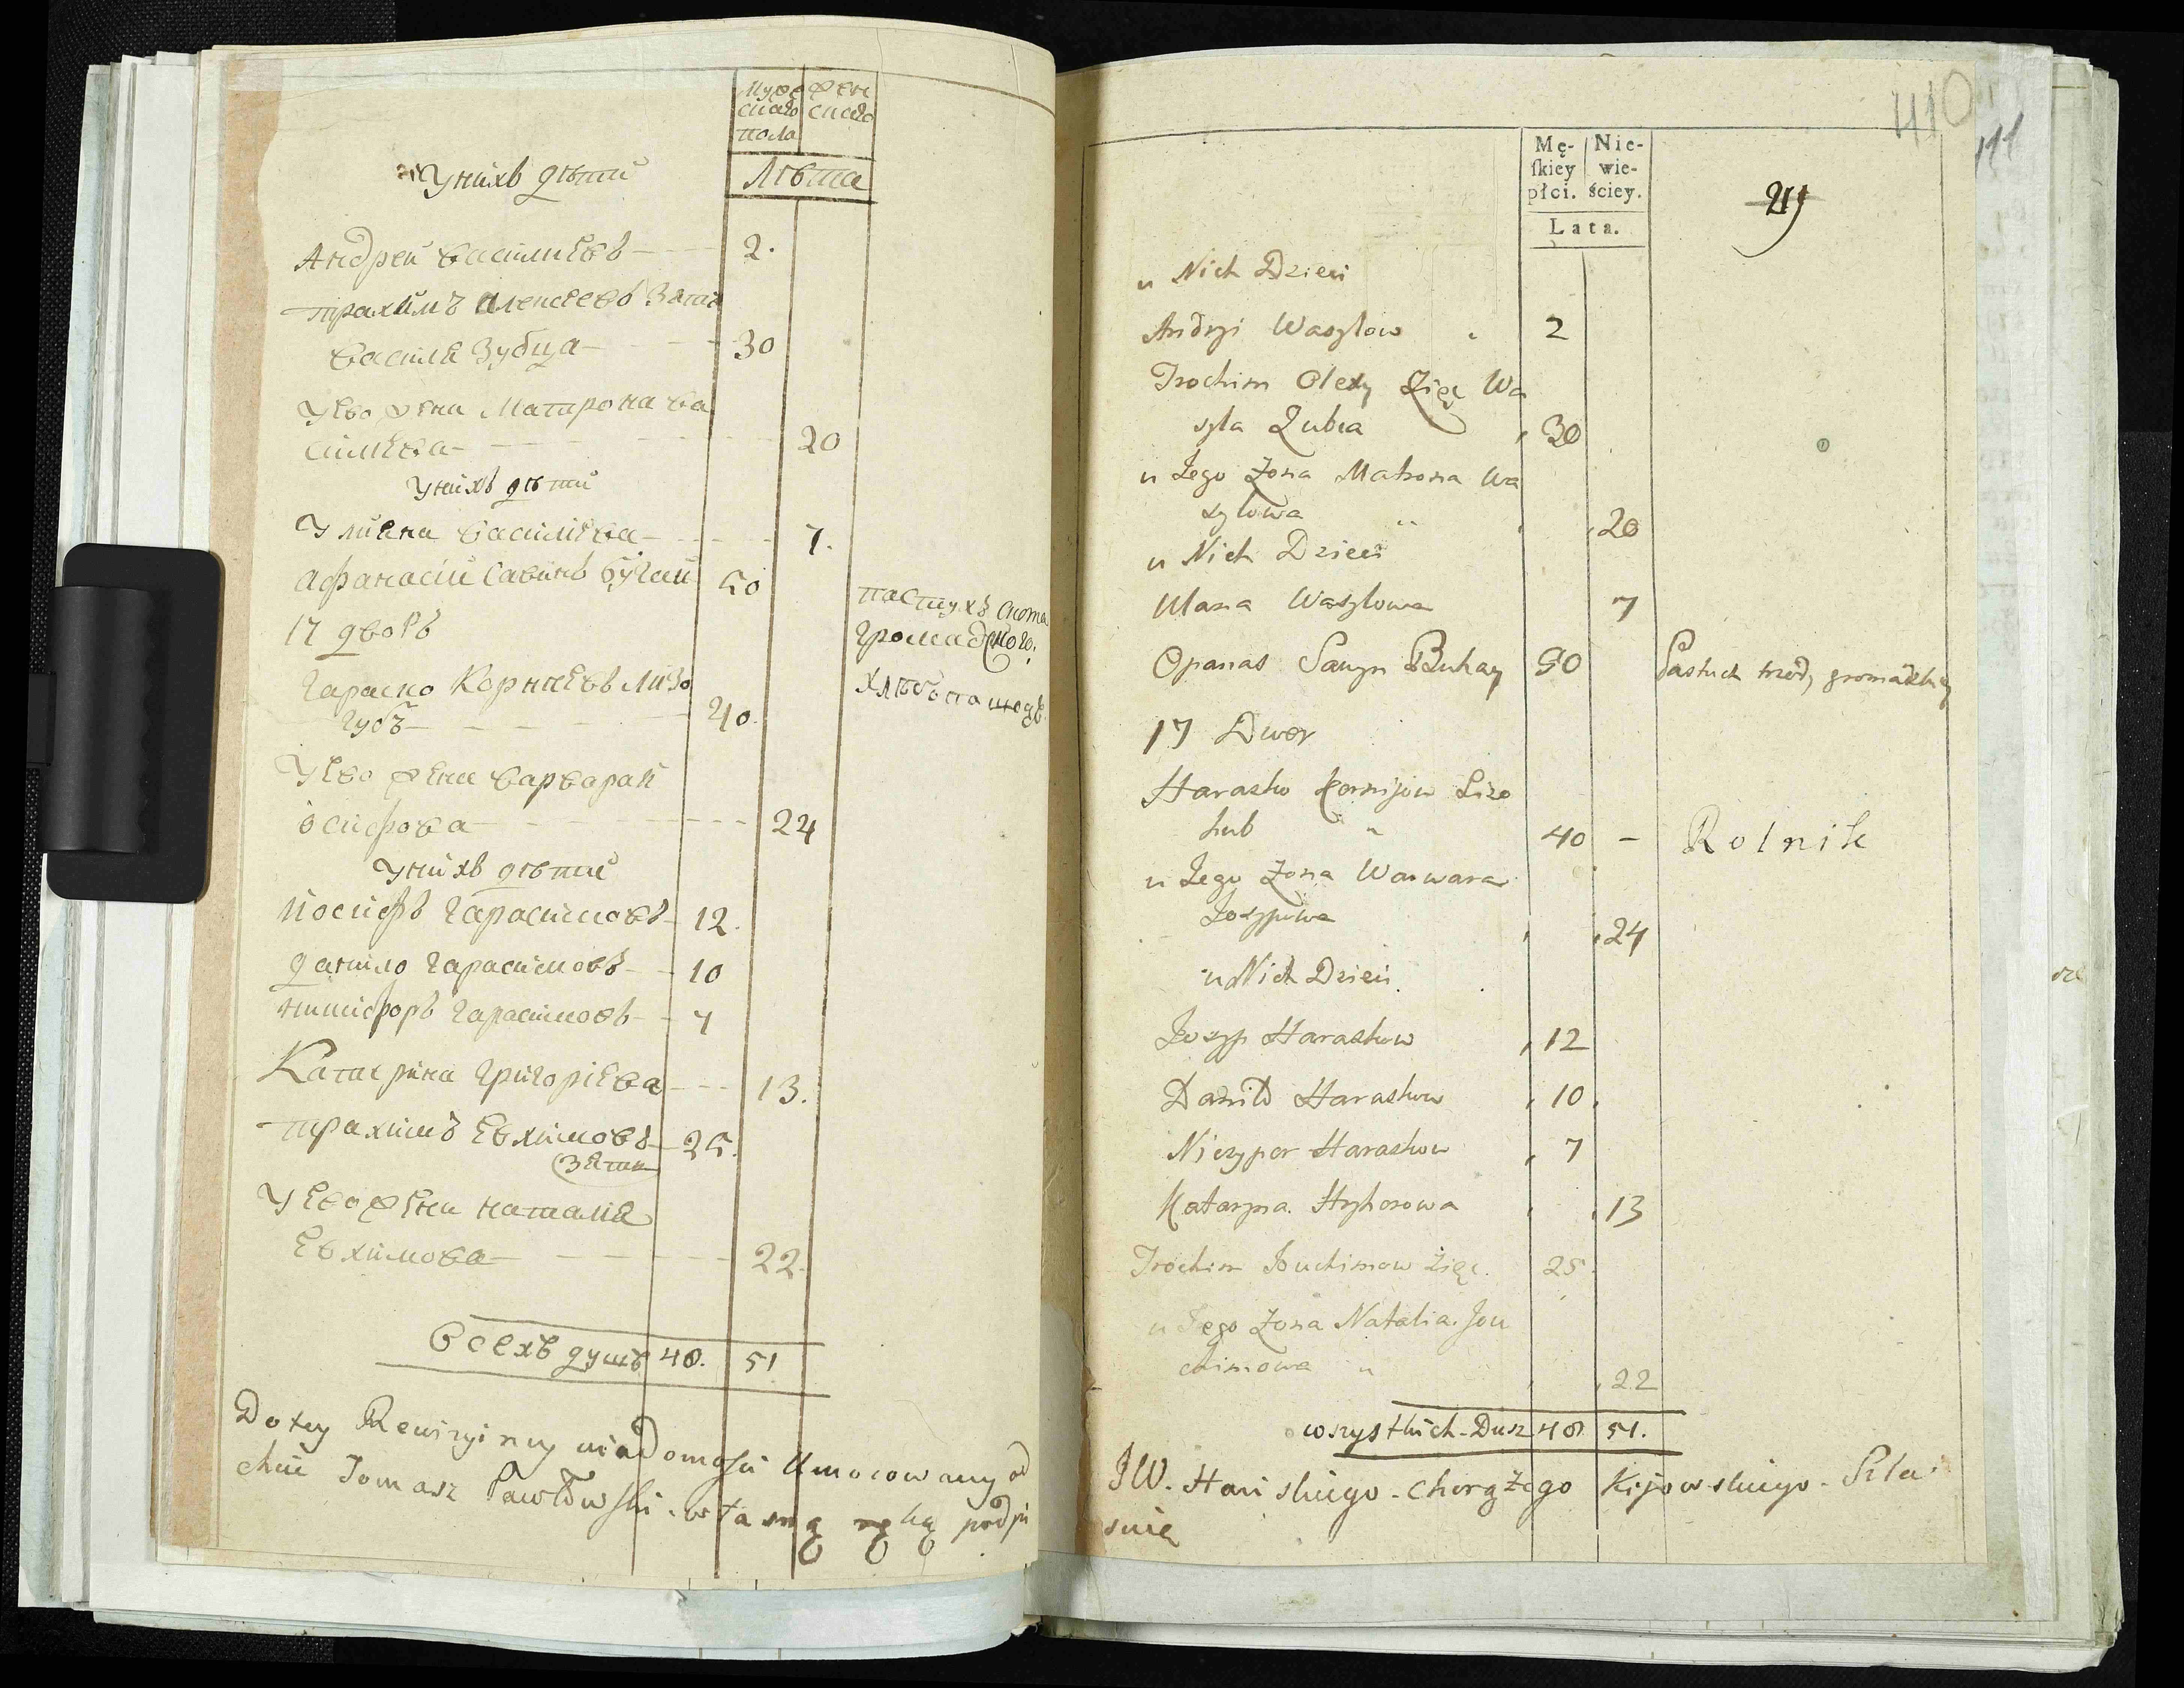 Мужескаго пола
Женскаго
Лѣта
У нихъ дѣти
Андрей Василіевъ 2.
Трахимъ Алексеевъ Зять
Василя Зубца 30
У Ево жена Матрона Ва
силіева 20
У нихъ дѣти
Улияна Василіева 7.
Афанасій Савинъ Бугай 50
пастухъ скота
громадского.
17 дворъ
Гараско Корніевъ Лизо
губъ 40.
хлѣбопашецъ
У Ево жена Варвара
Осифова 24
У нихъ дѣти
Иосифъ Гарасимовъ 12.
Данило Гарасимовъ 10
Никифоръ Гарасимовъ 7
Катерина Григоріева 13.
Трахимъ Евхимовъ 25.
Зять
У Ево жена Наталія
Евхимова 22.
Всехъ душъ 48. 51
Do tey Rewizyiney wiadomości Umocowany od
chuie Tomasz Pawłowski. własną ręką podpi
410
111
Mę-
skiey
płci.
Nie-
wie-
ściey.
Lata.
u Nich Dzieci
Andryi Wasylow 2
Trochim Olexy Zięć Wa
syla Zubca 30
u Jego Zona Matrona Wa
sylowa 20
u Nich Dzieci
Ulana Wasylowa 7
Opanas Sawyn Buhay 50 Pastuch trzody gromadzkiey
17 Dwor
Harasko Kornijow Lizo
hub 40 - Rolnik
u Jego Zona Warwara
Josypowa 24
u Nich Dzieci
Josyp Haraskow 12
Daniło Haraskow 10
Niczypor Haraskow 7
Kataryna Hryhorowa 13
Trochim Jouchimow Zięć. 25
u Jego Zona Natalia Jou
chimowa 22
wszystkich Dusz 48 51.
JW. Hańskiego Chorążego Kijowskiego Szla
suię